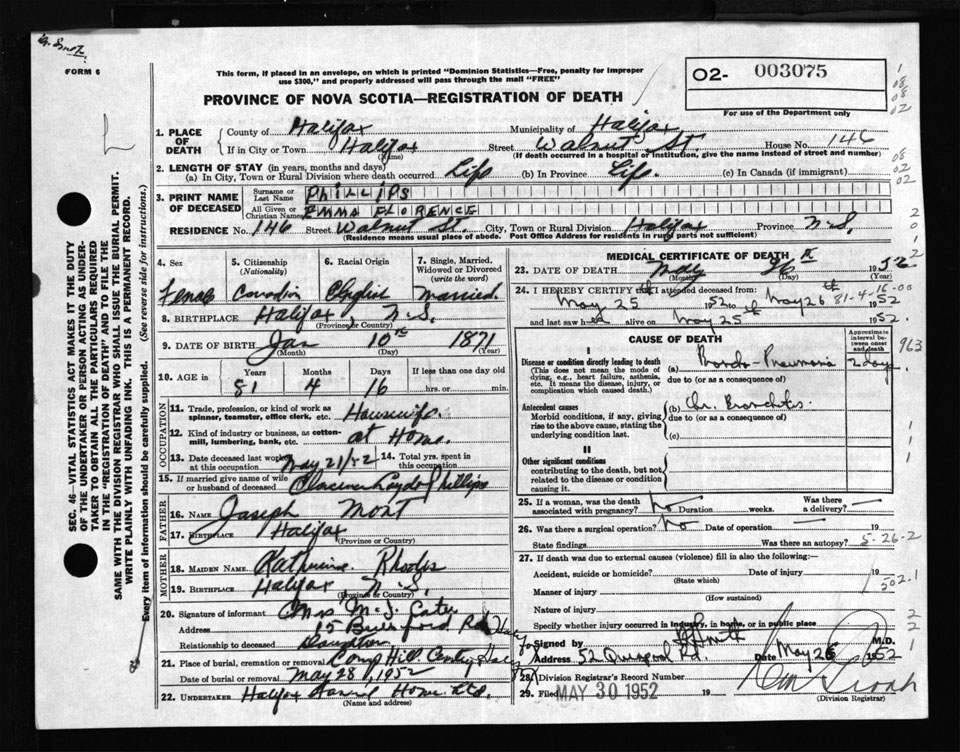 FORM 6
This form, if placed in an envelope, on which is printed "Dominion Statistics—Free, penalty for improper
use $300," and properly addressed will pass through the mail "FREE"
PROVINCE OF NOVA SCOTIA—REGISTRATION OF DEATH
O2- 003075
For use of the Department only
1. PLACE OF DEATH
County of Halifax Municipality of Halifax
If in City or Town Halifax (Name) Street Walnut St. House No. 146
(If death occurred in a hospital or institution, give the name instead of street and number)
2. LENGTH OF STAY (in years, months and days)
(a) In City, Town or Rural Division where death occurred Life (b) In Province Life. (c) In Canada (if immigrant)
3. PRINT NAME OF DECEASED
Surname or Last Name PHILLIPS
All Given or Christian Names EMMA FLORENCE
RESIDENCE No. 146 Street Walnut St. City, Town or Rural Division Halifax Province N.S.
(Residence means usual place of abode. Post Office Address for residents in rural parts not sufficient)
4. Sex Female
5. Citizenship (Nationality) Canadian
6. Racial Origin English
7. Single, Married, Widowed or Divorced (write the word) Married.
8. BIRTHPLACE Halifax, N.S.
(Province or Country)
9. DATE OF BIRTH Jan 10th 1871
(Month) (Day) (Year)
10. AGE in Years Months Days If less than one day old
81 4 16 hrs. or min.
OCCUPATION
11. Trade, profession, or kind of work as
spinner, teamster, office clerk, etc. Housewife.
12. Kind of industry or business, as cotton-
mill, lumbering, bank, etc. at Home.
13. Date deceased last worked at this occupation May 21/52 14. Total yrs. spent in this occupation
15. If married give name of wife
or husband of deceased Clarence Phillips
FATHER
16. NAME Joseph Mont
17. BIRTHPLACE Halifax
(Province or Country)
MOTHER
18. MAIDEN NAME Katherine Rhodes
19. BIRTHPLACE Halifax N.S.
(Province or Country)
20. Signature of informant Mrs M. J.
Address 15
Relationship to deceased Daughter
21. Place of burial, cremation or removal Camp Hill
Date of burial or removal May 28, 1952
22. UNDERTAKER Halifax Home Ltd.
(Name and address)
MEDICAL CERTIFICATE OF DEATH
23. DATE OF DEATH May 26 1952
(Month) (Day)
24. I HEREBY CERTIFY that I attended deceased from
May 25 1952 to May 26th 1952
81-4-16-00
and last saw h alive on May 25th 1952.
CAUSE OF DEATH
Approximate interval between onset and death
I
Disease or condition directly leading to death
(This does not mean the mode of
dying, e.g., heart failure, asthenia,
etc. It means the disease, injury, or
complication which caused death.)
(a) Broncho-Pneumonia 2 days
due to (or as a consequence of)
963
Antecedent causes
Morbid conditions, if any, giving
rise to the above cause, stating the
underlying condition last.
(b) Chr. Bronchitis
due to (or as a consequence of)
(c)
II
Other significant conditions
contributing to the death, but not
related to the disease or condition
causing it.
25. If a woman, was the death associated with pregnancy? No Duration weeks. Was there a delivery?
26. Was there a surgical operation? No Date of operation 19
State findings Was there an autopsy?
5-26-2
27. If death was due to external causes (violence) fill in also the following:—
Accident, suicide or homicide? Date of injury 19
(State which)
502.1
Manner of injury
(How sustained)
Nature of injury
Specify whether injury occurred in industry, in home, or in public place
Signed by Smith M.D.
Address 52 Quinpool Rd. Date May 26 1952
28. Division Registrar's Record Number
29. Filed MAY 30 1952 19
(Division Registrar)
SEC. 46—VITAL STATISTICS ACT MAKES IT THE DUTY
OF THE UNDERTAKER OR PERSON ACTING AS UNDER-
TAKER TO OBTAIN ALL THE PARTICULARS REQUIRED
IN THE "REGISTRATION OF DEATH" AND TO FILE THE
SAME WITH THE DIVISION REGISTRAR WHO SHALL ISSUE THE BURIAL PERMIT.
WRITE PLAINLY WITH UNFADING INK. THIS IS A PERMANENT RECORD.
Every item of information should be carefully supplied. (See reverse side for instructions.)